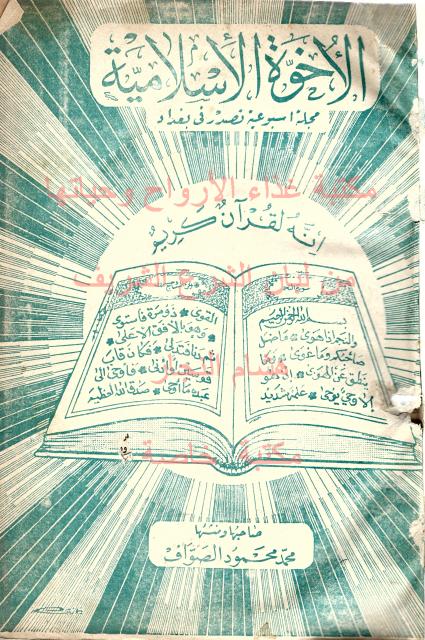 الأخوة الإسلامية
مجلة اسبوعية تصدر في بغداد
مكتبة غذاء الأرواح وحياتها
إِنَّهُ لَقُرْآنٌ كَرِيمٌ
من لبان الشرع الشريف
بسم الله الرحمن الرحيم
والنجم إذا هوى ما ضل
صاحبكم وما غوى وما
ينطق عن الهوى إن هو
إلا وحي يوحى علمه شديد
القوى ذو مرة فاستوى
وهو بالافق الاعلى
ثم دنا فتدلى فكان قاب
قوسين أو أدنى فأوحى الى
عبده ما أوحى صدق الله العظيم
هشام النجار
مكتبة خاصة
صاحبها ومنشئها
محمد محمود الصواف